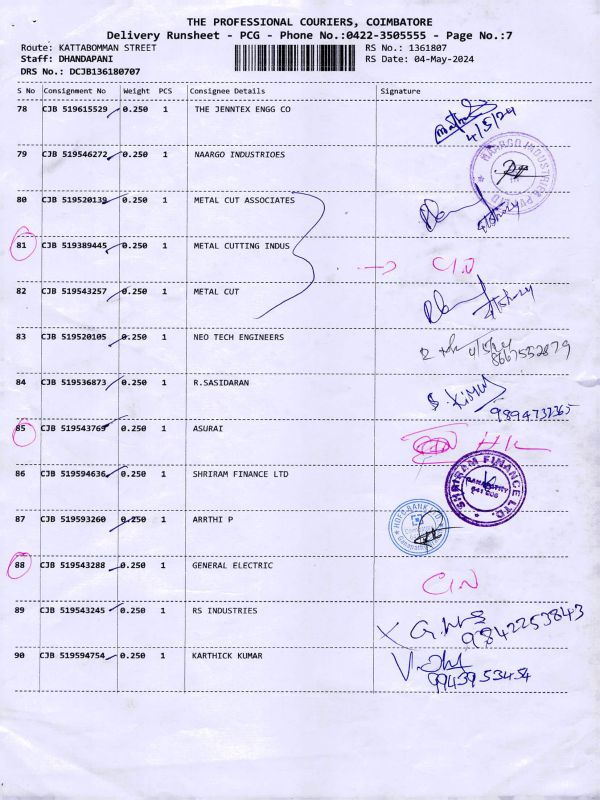 THE PROFESSIONAL COURIERS, COIMBATORE
Delivery Runsheet - PCG - Phone No.:0422-3505555 - Page No.:7
Route: KATTABOMMAN STREET RS No.: 1361807
Staff: DHANDAPANI RS Date: 04-May-2024
DRS No.: DCJB136180707
S No Consignment No Weight PCS Consignee Details Signature
78 CJB 519615529 0.250 1 THE JENNTEX ENGG CO
4/5/24
79 CJB 519546272 0.250 1 NAARGO INDUSTRIOES
NAARGO INDUSTRIES PVT LTD
80 CJB 519520139 0.250 1 METAL CUT ASSOCIATES
4/5/2024
81 CJB 519389445 0.250 1 METAL CUTTING INDUS
C/N
82 CJB 519543257 0.250 1 METAL CUT
4/5/2024
83 CJB 519520105 0.250 1 NEO TECH ENGINEERS
4/5/24
8667552879
84 CJB 519536873 0.250 1 R.SASIDARAN
9894737365
85 CJB 519543769 0.250 1 ASURAI
86 CJB 519594636 0.250 1 SHRIRAM FINANCE LTD
SHRIRAM FINANCE LTD.
GANAPATHY
641 006
87 CJB 519593260 0.250 1 ARRTHI P
HDFC BANK LTD
88 CJB 519543288 0.250 1 GENERAL ELECTRIC
C/N
89 CJB 519543245 0.250 1 RS INDUSTRIES
9842253843
90 CJB 519594754 0.250 1 KARTHICK KUMAR
9943953454